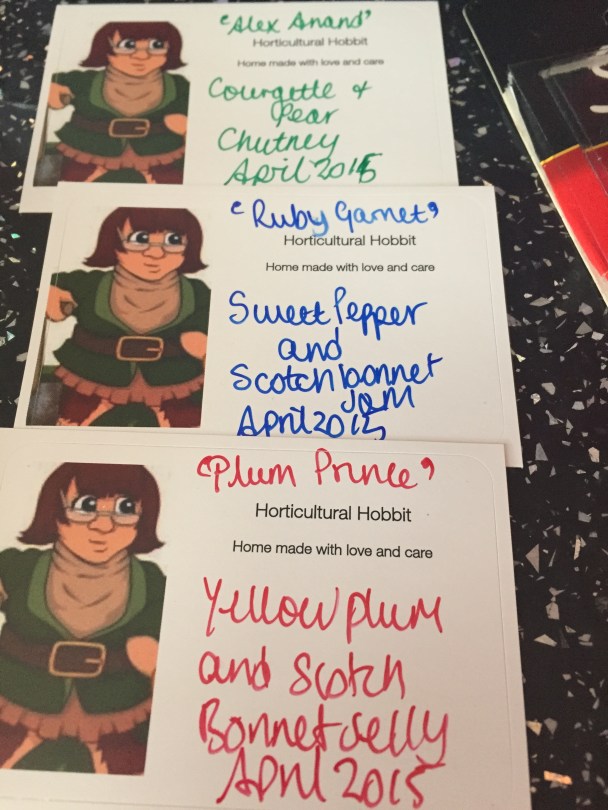 'Alex Anand'
Horticultural Hobbit
Home made with love and care
Courgette &
Pear
Chutney
April 2015
'Ruby Garnet'
Horticultural Hobbit
Home made with love and care
Sweet Pepper
and
Scotch bonnet
Jam
April 2015
'Plum Prince'
Horticultural Hobbit
Home made with love and care
Yellow plum
and Scotch
Bonnet Jelly
April 2015